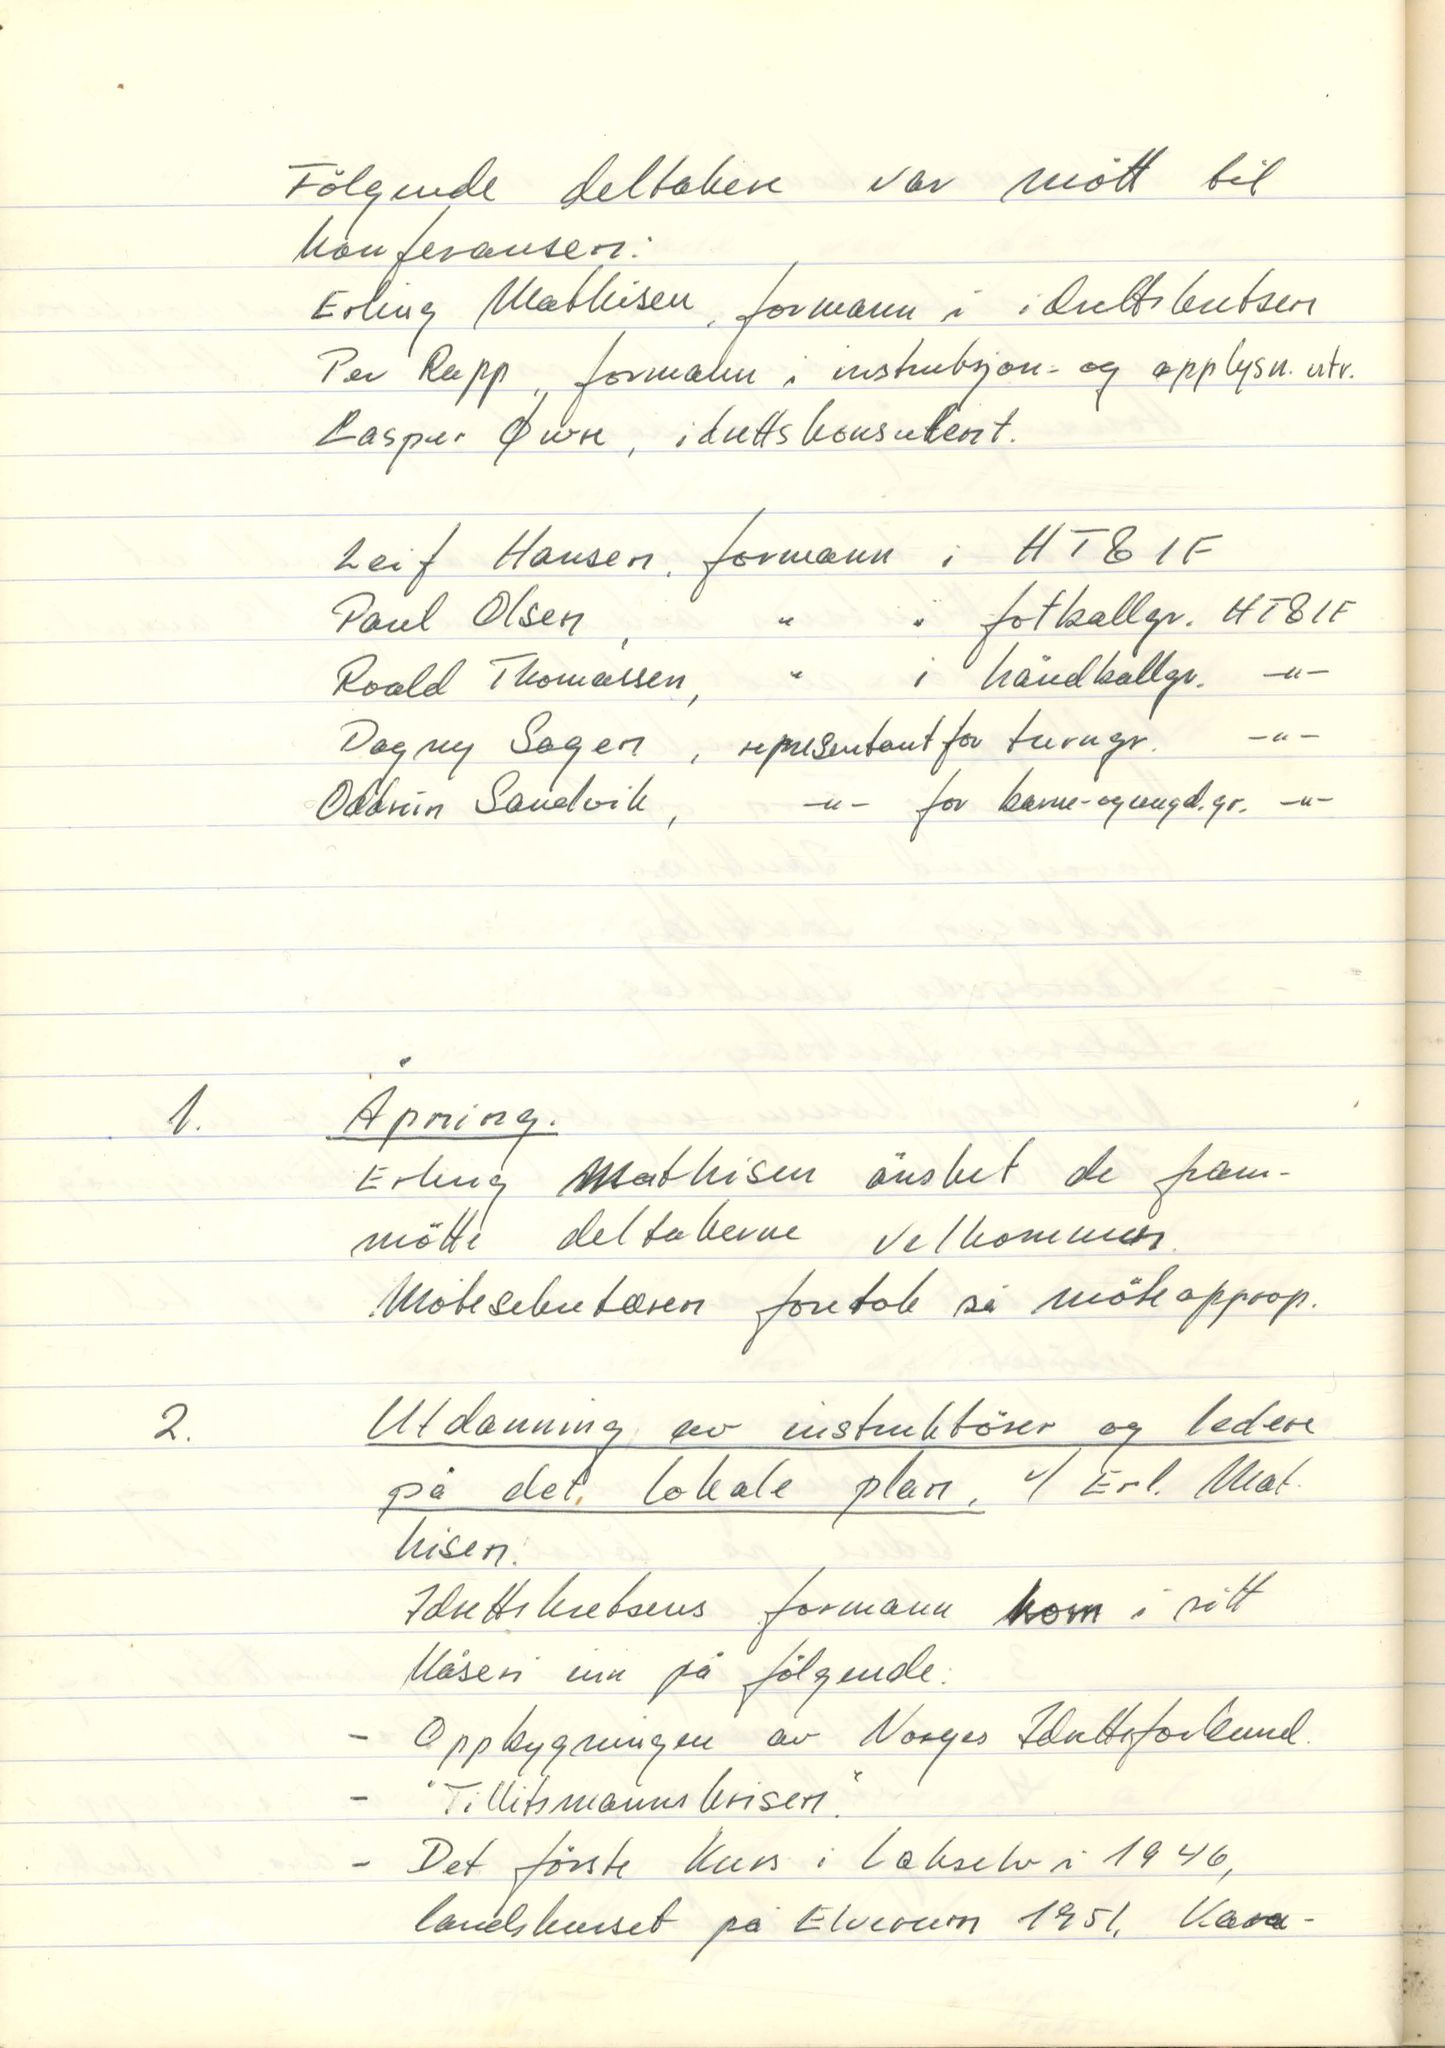 Fölgende deltakere var mött til
konferansen:
Erling Mathisen, formann i idrettskretsen
Per Rapp, formann i instruksjon- og opplysn. utv.
Kasper Øwre, idrettskonsulent.
Leif Hansen, formann i HT&IF
Paul Olsen, " " fotballgr. HT&IF
Roald Thomassen, " i håndballgr. -"-
Dagny Sagen, representant for turngr. -"-
Oddrun Sandvik, -"- for barne- og ungd.gr. -"-
1. Åpning.
Erling Mathisen önsket de fram-
mötte deltakerne velkommen.
Mötesekretæren foretok så möteopprop.
2. Utdanning av instruktörer og ledere
på det lokale plan, v/ Erl. Mat-
hisen.
Idrettskretsens formann kom i sitt
kåseri inn på fölgende:
- Oppbygningen av Norges Idrettsforbund.
- "Tillitsmannskrisen".
- Det förste kurs i Lakselv i 1946,
landskurset på Elverum 1951, Kara-